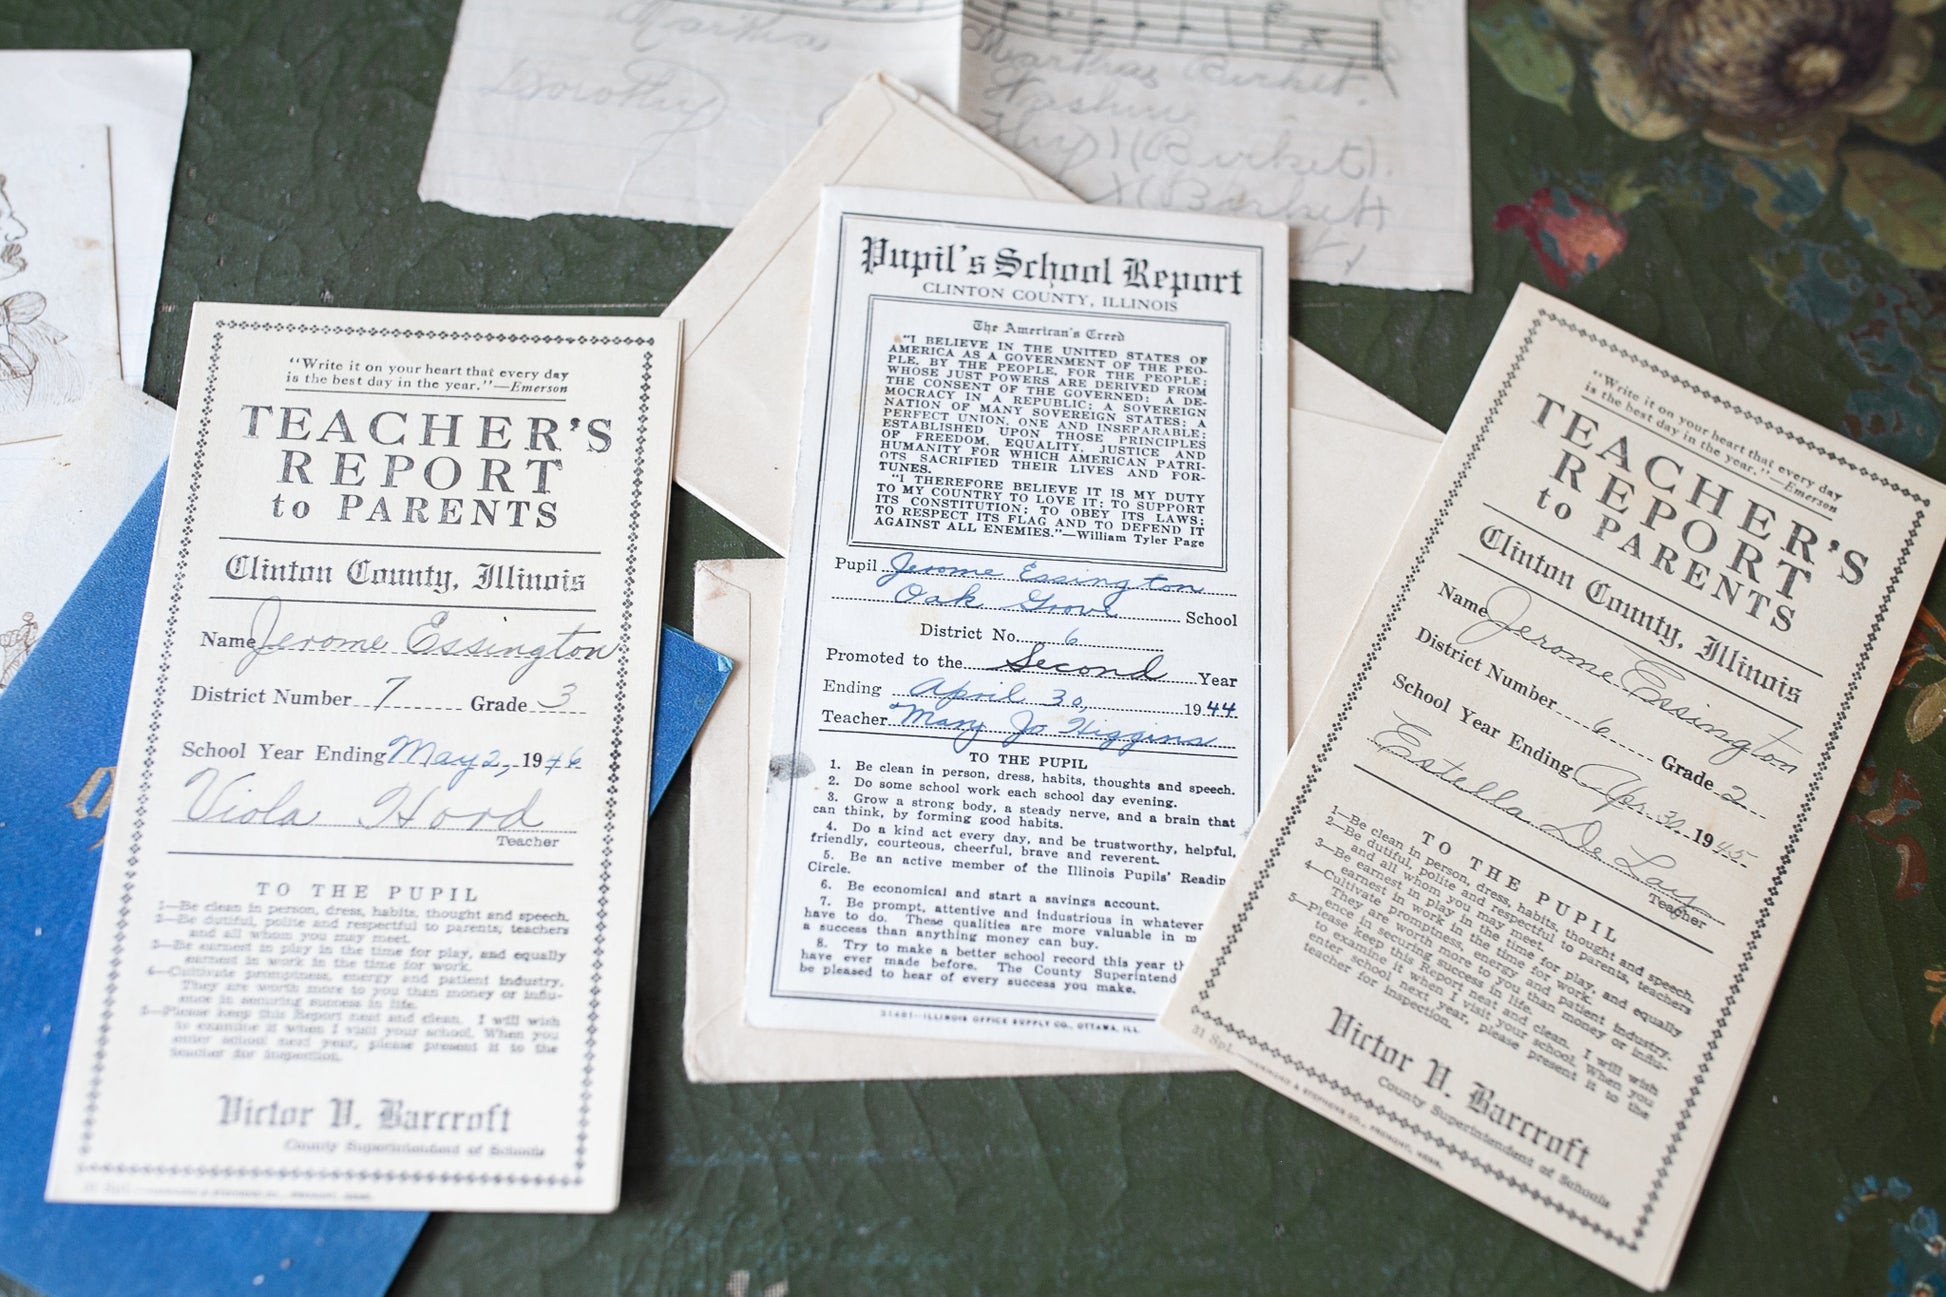 Martha
Dorothy
Marthas Birket.
(Birket).
"Write it on your heart that every day
is the best day in the year."—Emerson
TEACHER'S
REPORT
to PARENTS
Clinton County, Illinois
Name Jerome Essington
District Number 7 Grade 3
School Year Ending May 2, 1946
Viola Hord
Teacher
TO THE PUPIL
1—Be clean in person, dress, habits, thought and speech.
2—Be dutiful, polite and respectful to parents, teachers
and all whom you may meet.
3—Be earnest in play in the time for play, and equally
earnest in work in the time for work.
4—Cultivate promptness, energy and patient industry.
They are worth more to you than money or influ-
ence in securing success in life.
5—Please keep this Report neat and clean. I will wish
to examine it when I visit your school. When you
enter school next year, please present it to the
teacher for inspection.
Victor V. Barcroft
County Superintendent of Schools
Pupil's School Report
CLINTON COUNTY, ILLINOIS
The American's Creed
"I BELIEVE IN THE UNITED STATES OF
AMERICA AS A GOVERNMENT OF THE PEO-
PLE, BY THE PEOPLE, FOR THE PEOPLE;
WHOSE JUST POWERS ARE DERIVED FROM
THE CONSENT OF THE GOVERNED; A DE-
MOCRACY IN A REPUBLIC; A SOVEREIGN
NATION OF MANY SOVEREIGN STATES; A
PERFECT UNION, ONE AND INSEPARABLE;
ESTABLISHED UPON THOSE PRINCIPLES
OF FREEDOM, EQUALITY, JUSTICE AND
HUMANITY FOR WHICH AMERICAN PATRI-
OTS SACRIFIED THEIR LIVES AND FOR-
TUNES.
"I THEREFORE BELIEVE IT IS MY DUTY
TO MY COUNTRY TO LOVE IT; TO SUPPORT
ITS CONSTITUTION; TO OBEY ITS LAWS;
TO RESPECT ITS FLAG AND TO DEFEND IT
AGAINST ALL ENEMIES."—William Tyler Page
Pupil Jerome Essington
Oak Grove School
District No. 6
Promoted to the Second Year
Ending April 30, 1944
Teacher Mary Jo Higgins
TO THE PUPIL
1. Be clean in person, dress, habits, thoughts and speech.
2. Do some school work each school day evening.
3. Grow a strong body, a steady nerve, and a brain that
can think, by forming good habits.
4. Do a kind act every day, and be trustworthy, helpful,
friendly, courteous, cheerful, brave and reverent.
5. Be an active member of the Illinois Pupils' Readin
Circle.
6. Be economical and start a savings account.
7. Be prompt, attentive and industrious in whatever
have to do. These qualities are more valuable in m
a success than anything money can buy.
8. Try to make a better school record this year th
have ever made before. The County Superintend
be pleased to hear of every success you make.
31401—ILLINOIS OFFICE SUPPLY CO., OTTAWA, ILL.
"Write it on your heart that every day
is the best day in the year."—Emerson
TEACHER'S
REPORT
to PARENTS
Clinton County, Illinois
Name Jerome Essington
District Number 6 Grade 2
School Year Ending Apr. 30, 1945
Eastella De Lay
Teacher
TO THE PUPIL
1—Be clean in person, dress, habits, thoughts and speech.
2—Be dutiful, polite and respectful to parents, teachers
and all whom you may meet.
3—Be earnest in play in the time for play, and equally
earnest in work in the time for work.
4—Cultivate promptness, energy and patient industry.
They are worth more to you than money or influ-
ence in securing success in life.
5—Please keep this Report neat and clean. I will wish
to examine it when I visit your school. When you
enter school next year, please present it to the
teacher for inspection.
Victor V. Barcroft
County Superintendent of Schools
31 Spl.—HAMMOND & STEPHENS CO., FREMONT, NEBR.